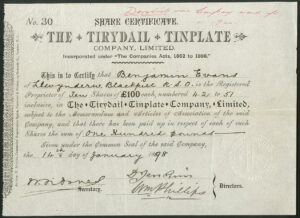 No. 30
SHARE CERTIFICATE.
THE TIRYDAIL TINPLATE
COMPANY, LIMITED.
Incorporated under "The Companies Acts, 1862 to 1886."
This is to Certify that Benjamin Evans
of Llwynderw Blackpill R.S.O. is the Registered
Proprietor of Ten Shares of £100 each numbered 42 to 51
inclusive, in The Tirydail Tinplate Company, Limited,
subject to the Memorandum and Articles of Association of the said
Company, and that there has been paid up in respect of each of such
Shares the sum of One Hundred pounds
Given under the Common Seal of the said Company,
the 14th day of January 1898
Secretary.
Wm Phillips
Directors.